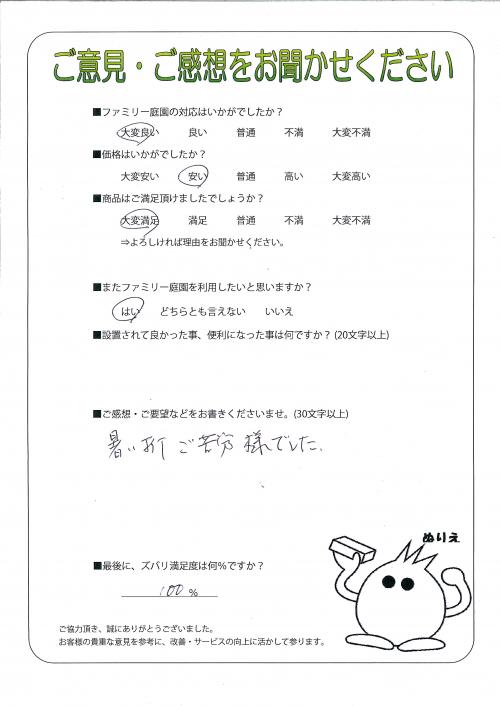 ご意見・ご感想をお聞かせください
■ファミリー庭園の対応はいかがでしたか？
大変良い 良い 普通 不満 大変不満
■価格はいかがでしたか？
大変安い 安い 普通 高い 大変高い
■商品はご満足頂けましたでしょうか？
大変満足 満足 普通 不満 大変不満
⇒よろしければ理由をお聞かせください。
■またファミリー庭園を利用したいと思いますか？
はい どちらとも言えない いいえ
■設置されて良かった事、便利になった事は何ですか？(20文字以上)
■ご感想・ご要望などをお書きくださいませ。(30文字以上)
暑い折 ご苦労様でした。
ぬりえ
■最後に、ズバリ満足度は何％ですか？
100 %
ご協力頂き、誠にありがとうございました。
お客様の貴重な意見を参考に、改善・サービスの向上に活かして参ります。